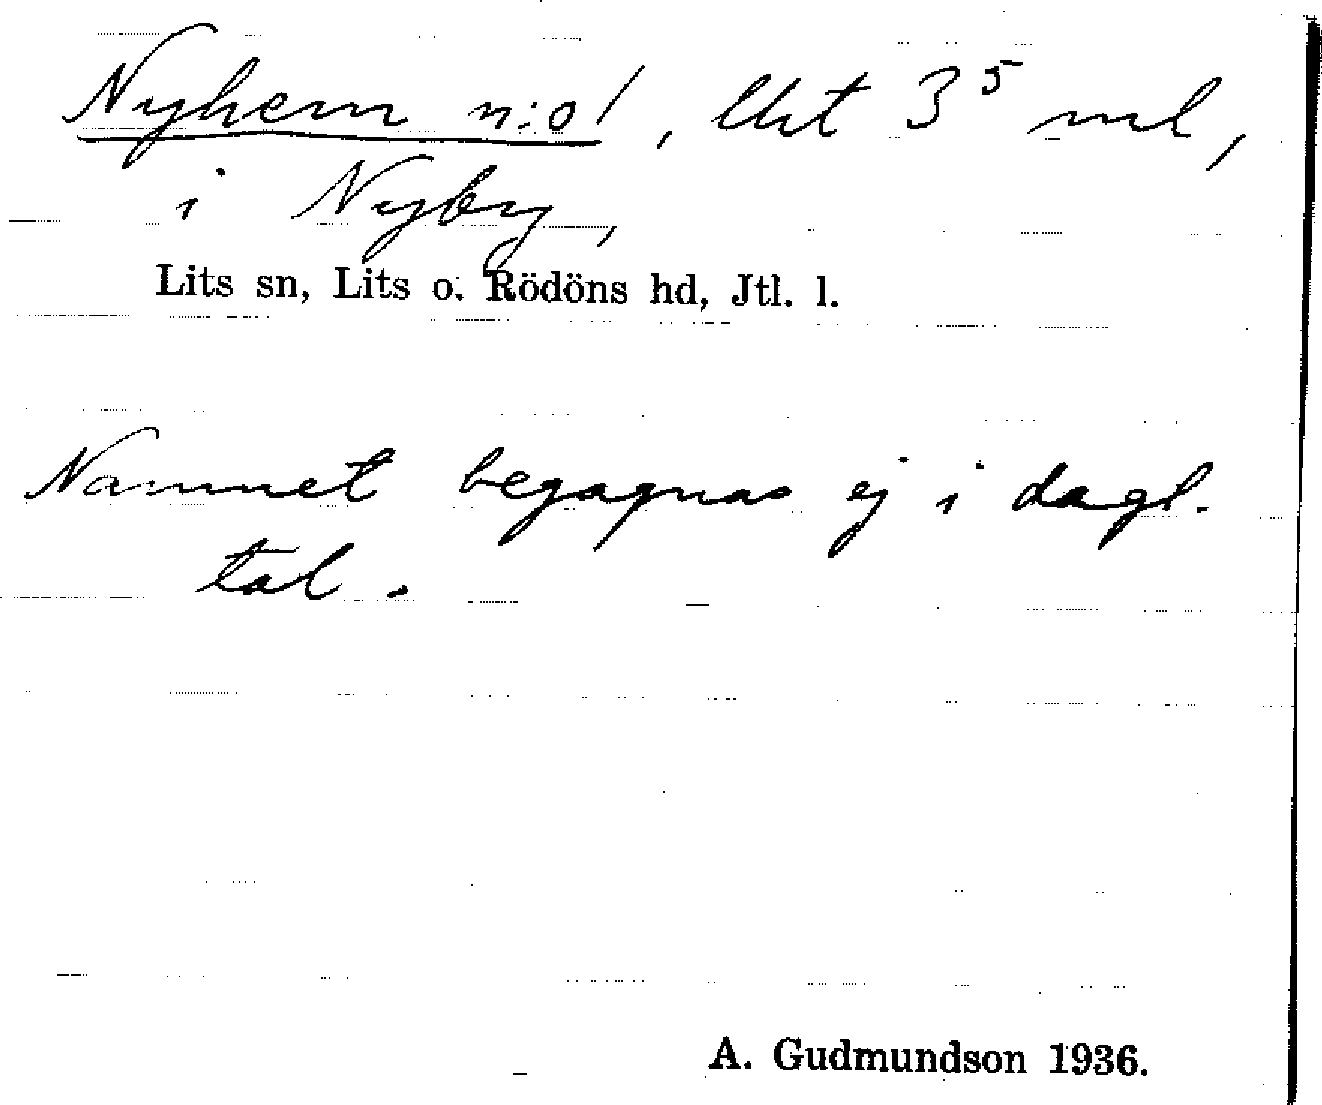 Nyhem n:o 1, lht 3⁵ ml,
i Nyby,
Lits sn, Lits o. Rödöns hd, Jtl. l.
Namnet begagnas ej i dagl.
tal.
A. Gudmundson 1936.